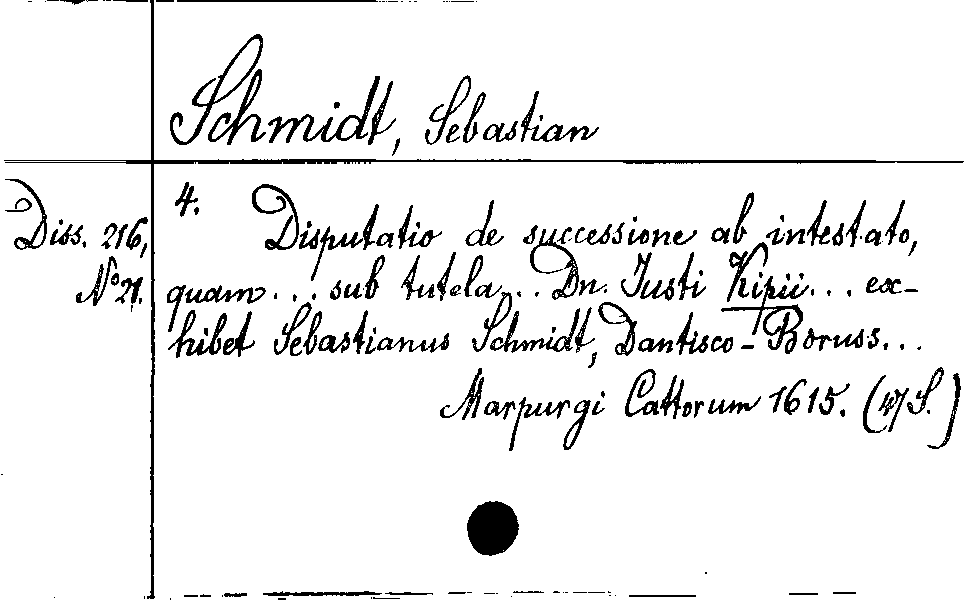 Schmidt, Sebastian
Diss. 216,
No 21.
4.
Disputatio de successione ab intestato,
quam... sub tutela... Dn. Justi Kipii... ex-
hibet Sebastianus Schmidt, Dantisco-Boruss...
Marpurgi Cattorum 1615. (47 S.)